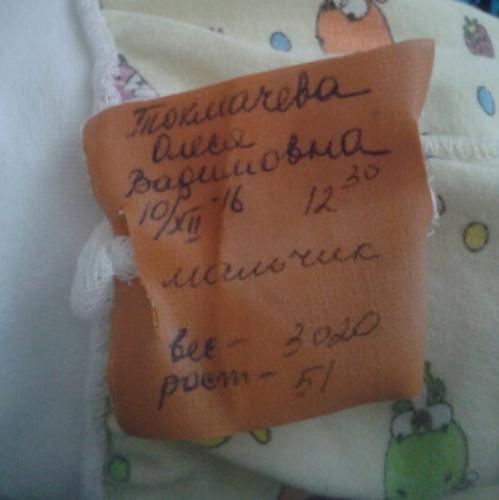 Токмачева
Олеся
Вадимовна
10/XII-16 12 30
мальчик
вес - 3020
рост - 51